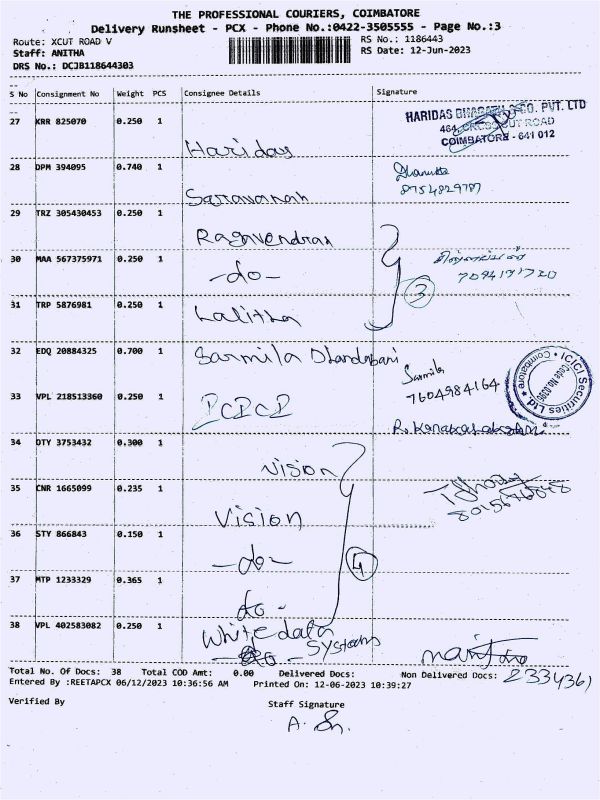 THE PROFESSIONAL COURIERS, COIMBATORE
Delivery Runsheet - PCX - Phone No.:0422-3505555 - Page No.:3
Route: XCUT ROAD V
RS No.: 1186443
Staff: ANITHA
RS Date: 12-Jun-2023
DRS No.: DCJB118644303
S No Consignment No Weight PCS Consignee Details Signature
27 KRR 825070 0.250 1
HARIDAS BHARATH & CO. PVT. LTD
ROAD
COIMBATORE - 641 012
Haridas
28 DPM 394095 0.740 1
8754829787
Saravanan
29 TRZ 305430453 0.250 1 Ragavendran
30 MAA 567375971 0.250 1
-do-
3
31 TRP 5876981 0.250 1
Lalitha
32 EDQ 20884325 0.700 1 Sarmila Dhandabani
Sarmila
7604984164
ICICI Securities Ltd. Coimbatore
33 VPL 218513360 0.250 1
ICICI
34 DTY 3753432 0.300 1
Vision
35 CNR 1665099 0.235 1
Vision
36 STY 866843 0.150 1
-do-
4
37 MTP 1233329 0.365 1
do-
38 VPL 402583082 0.250 1 White data
Systems
2334361
Total No. Of Docs: 38 Total COD Amt: 0.00 Delivered Docs: Non Delivered Docs:
Entered By :REETAPCX 06/12/2023 10:36:56 AM Printed On: 12-06-2023 10:39:27
Verified By
Staff Signature